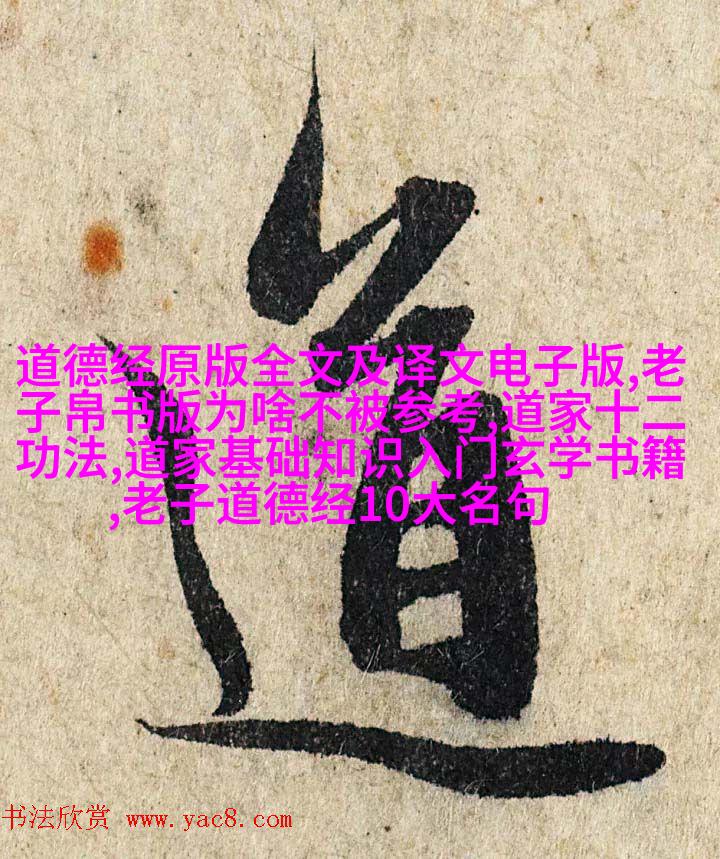 道
道德经原版全文及译文电子版,老
子帛书版为啥不被参考,道家十二
功法,道家基础知识入门玄学书籍
,老子道德经10大名句
书法欣赏 www.yac8.com